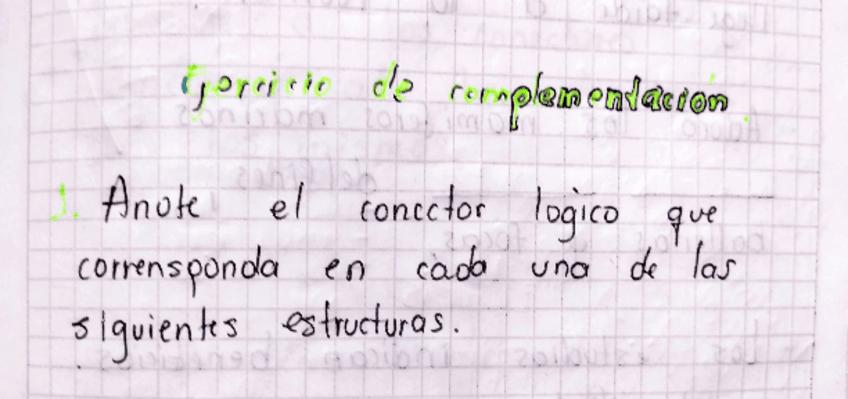 Ejercicio de complementación.
1. Anote el conector logico que
corrensponda en cada una de las
siguientes estructuras.